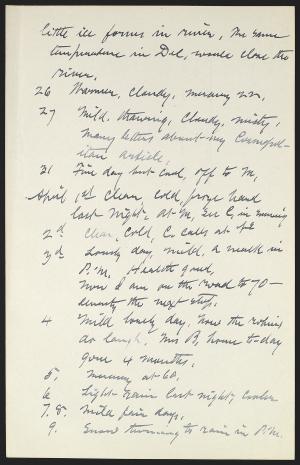 little ice forms in river, the same
temperature in Dec, would close the
river.
26 Warmer, cloudy, mercury 22,
27 Mild, thawing, cloudy, misty,
Many letters about my Cosmopol-
itan article,
31 Fine day but cool, off to M,
April 1st Clear, cold, froze hard
last night, at M, in evening
2d Clear, Cold, C. calls at
3d Lovely day, mild, a walk in
P.M. Health good,
Now I am on the road to 70 –
seventy the next stop.
4 Mild lovely day, how the robins
do laugh. Mrs B, home to-day
gone 4 months,
5, Mercury at 60,
6 Light rain last night, Cooler
7.8. Mild fair days,
9. Snow turning to rain in P.M.